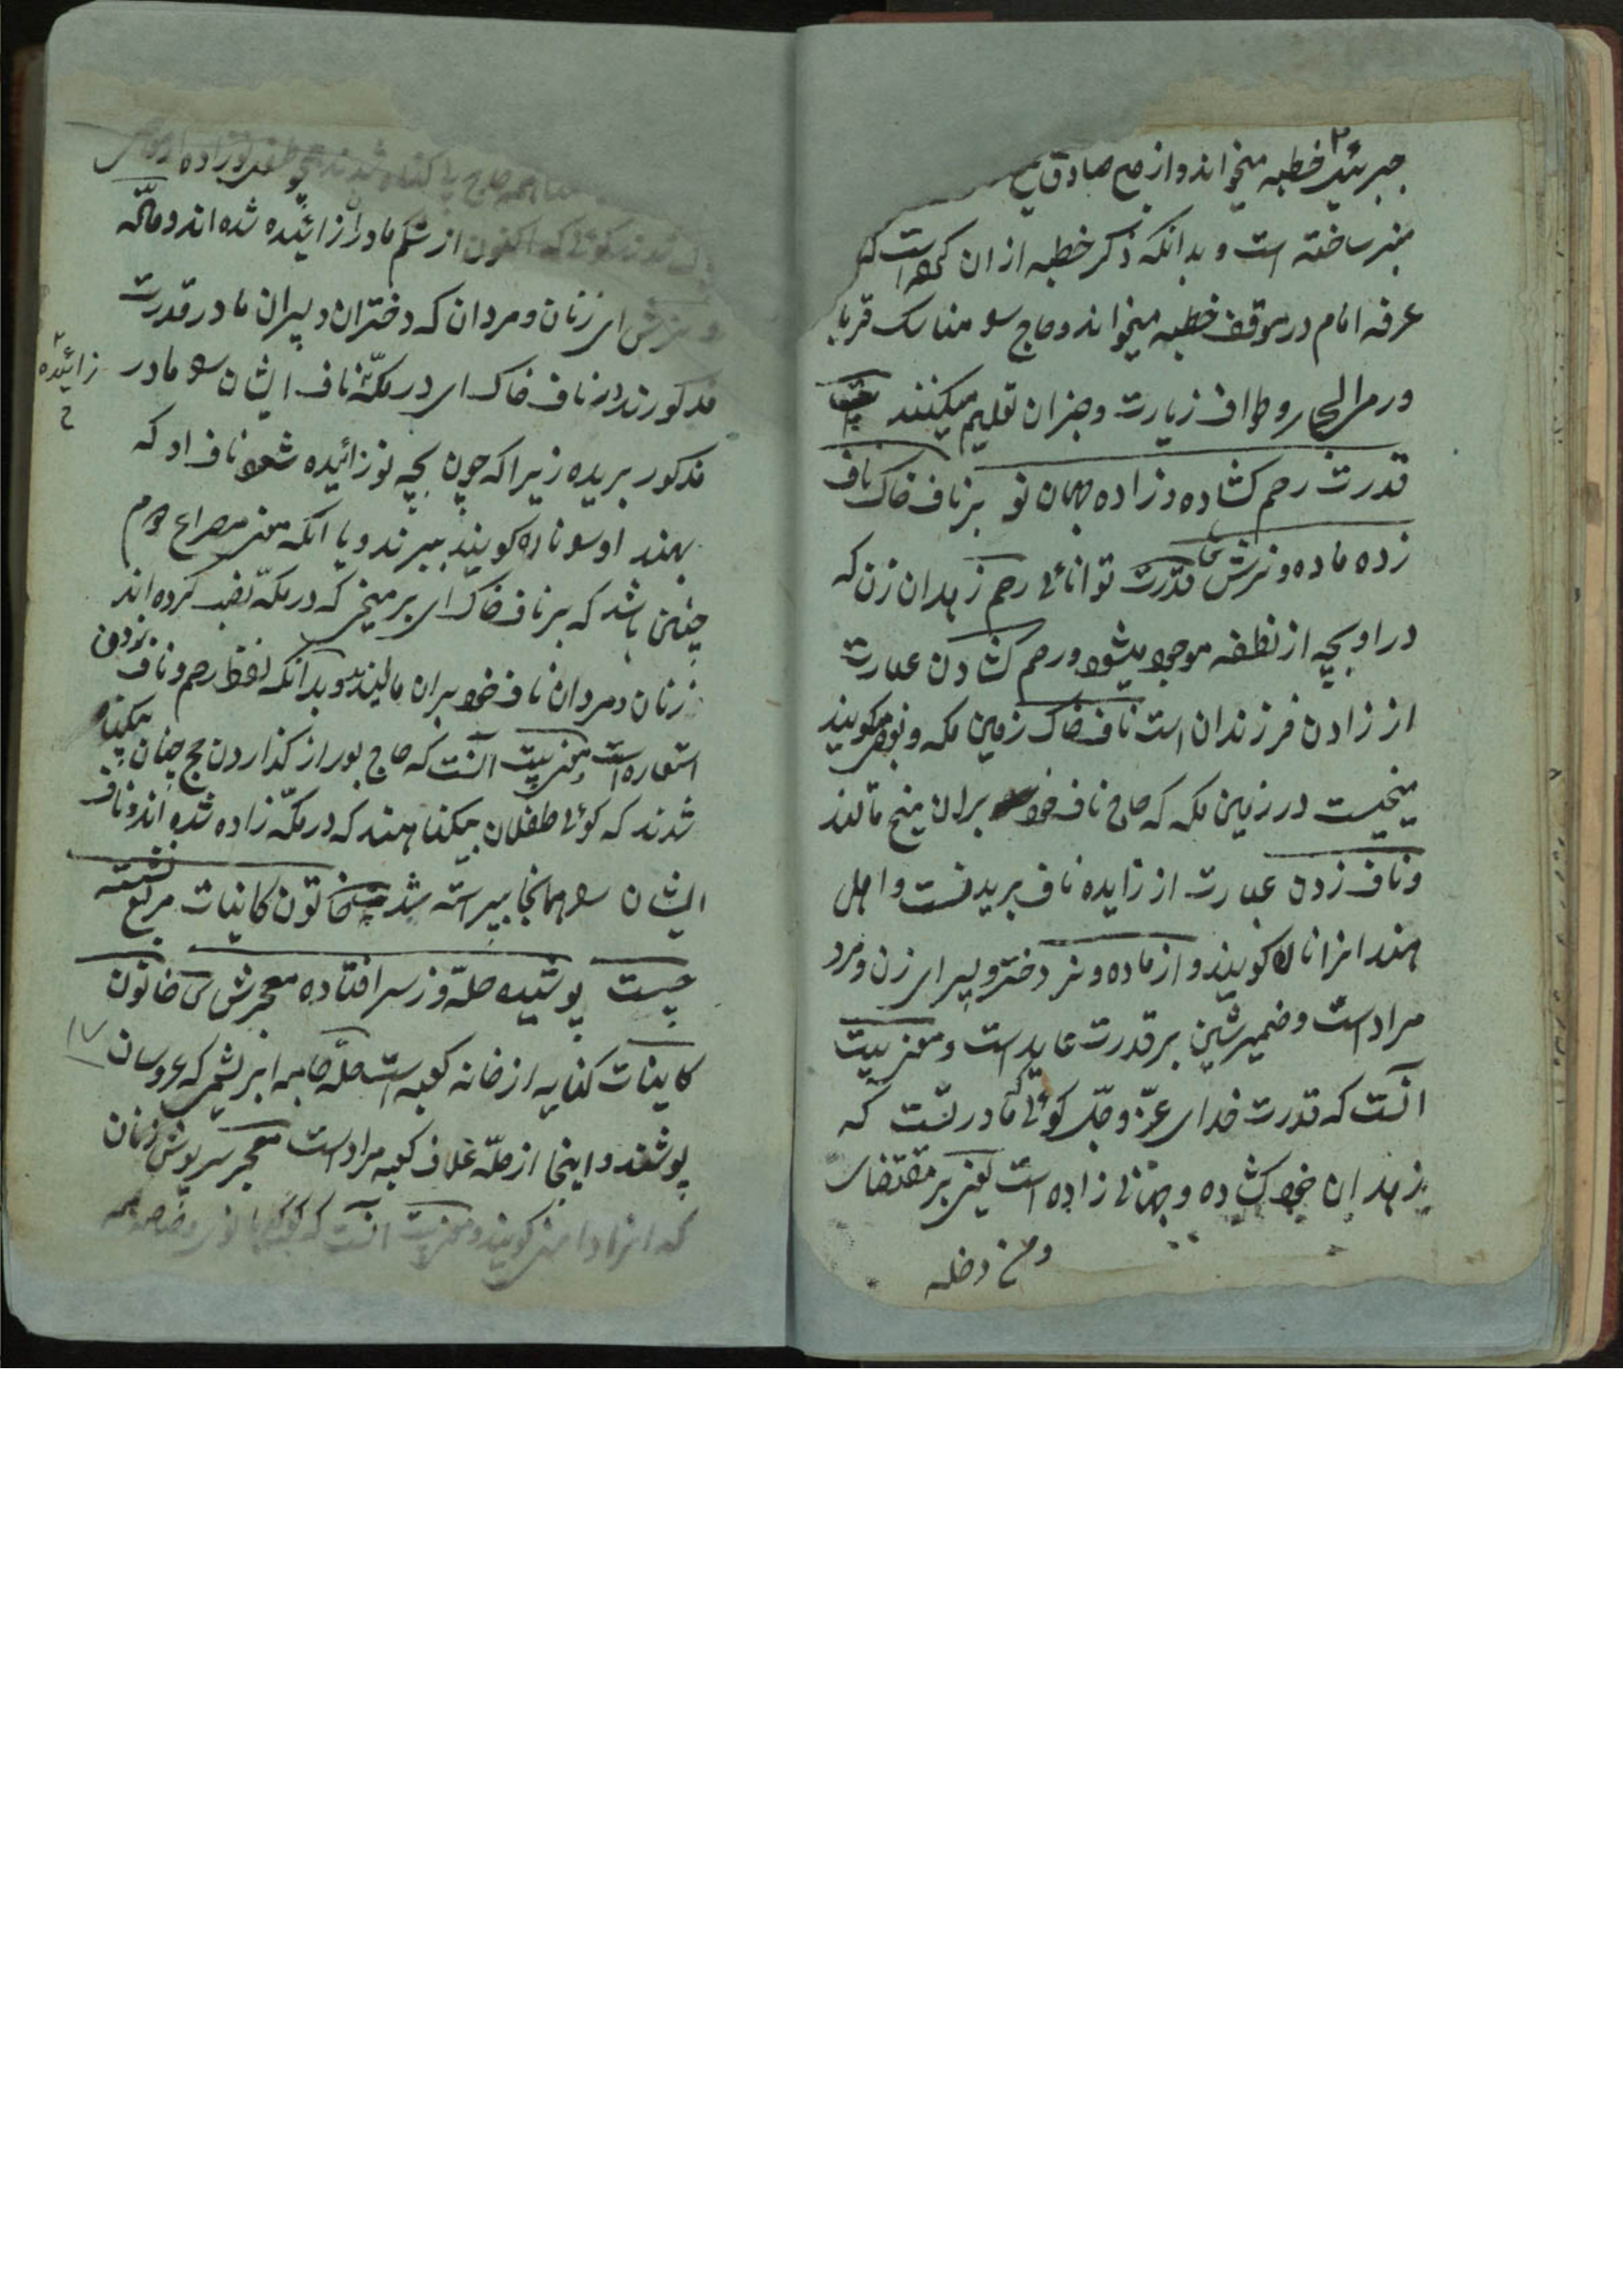 جبرئیل خطبه میخواند و از صبح صادق
منبر ساخته است و بدانکه ذکر خطبه از ان کرده است که
عرفه امام در موقف خطبه میخواند و حاج سو مناسک
و رمی الجمار و طواف زیارت و جزان تعلیم میکنند
قدرت رحم کشاده و زاده جهان نو بر ناف خاک ناف
زده ماده و نرش قدرت توانائی رحم زهدان زن که
در او بچه از نطفه موجود میشود و رحم کشادن عبارت
از زادن فرزندان است ناف خاک زمین مکه و میکویند
میخیست در زمین مکه که حاج ناف خود بران میخ مالند
و ناف زدن عبارت از زایده ناف بریدنست و اهل
هند انرا نال کویند و از ماده و نر دختر و پسر ای زن و مرد
مراد است و ضمیر شین بر قدرت عاید است و معنی بیت
آنست که قدرت خدای عز و جل کوئی مادریست که
زهدان خود کشاده و جهانی زاده است یعنی بر مقتضای
و من دخله
کوئی که اکنون از شکم مادر زائیده شده اند و ماکه
ای زنان و مردان که دختران و پسران مادر قدرت
مذکورند در ناف خاک ای در مکه ناف ایشان سو مادر
زائیده
مذکور بریده زیرا که چون بچه نو زائیده شود ناف او که
بهند او سو ناره کویند ببرند و یا انکه معنی مصراع دوم
چنین باشد که بر ناف خاک ای بر میخی که در مکه نصب کرده اند
زنان و مردان ناف خود بران مالیدند و بدانکه لفظ رحم و ناف
زدن
استعاره است و معنی بیت آنست که حاج بعد از کذاردن حج چنان بیکناه
شدند که کوئی طفلان بیکناهند که در مکه زاده شده اند و ناف
ایشان سو همانجا ببرسته شد خاتون کاینات مربع نشسته
چیست پوشیده حله و ز سر افتاده معجرش خاتون
کاینات کنایه از خانه کعبه است حله جامه ابریشمی که عروسان
پوشند و اینجا از حله غلاف کعبه مراد است معجر سرپوش زنان
که انرا دامنی کویند و معنی بیت آنست که